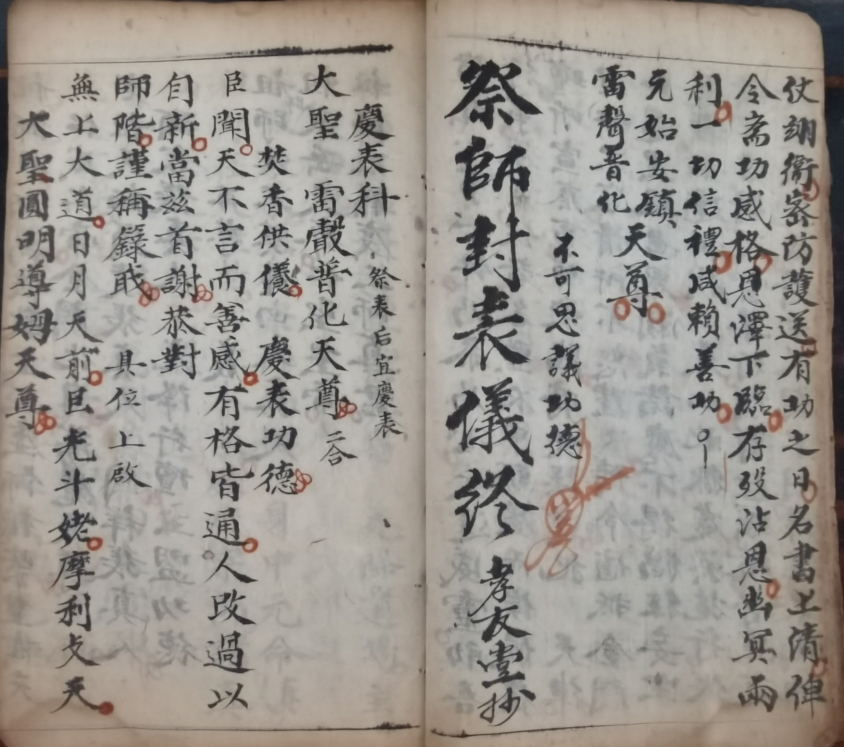 仗翊衛密防護送有功之日名書上清俾
令斋功感格恩澤下臨存殁沾恩幽冥兩
利一切信禮咸賴善功
元始安鎮天尊
雷聲普化
不可思議功德
祭師封表儀終 孝友堂抄
慶表科 祭表后宜慶表
大聖 雷聲普化天尊 仝
焚香供養 慶表功德
臣聞天不言而善感有格皆通人改過以
自新當兹首謝恭對
師階謹稱籙職 具位上啟
無上大道日月天前巨光斗姥摩利攴天
大聖圓明導姆天尊